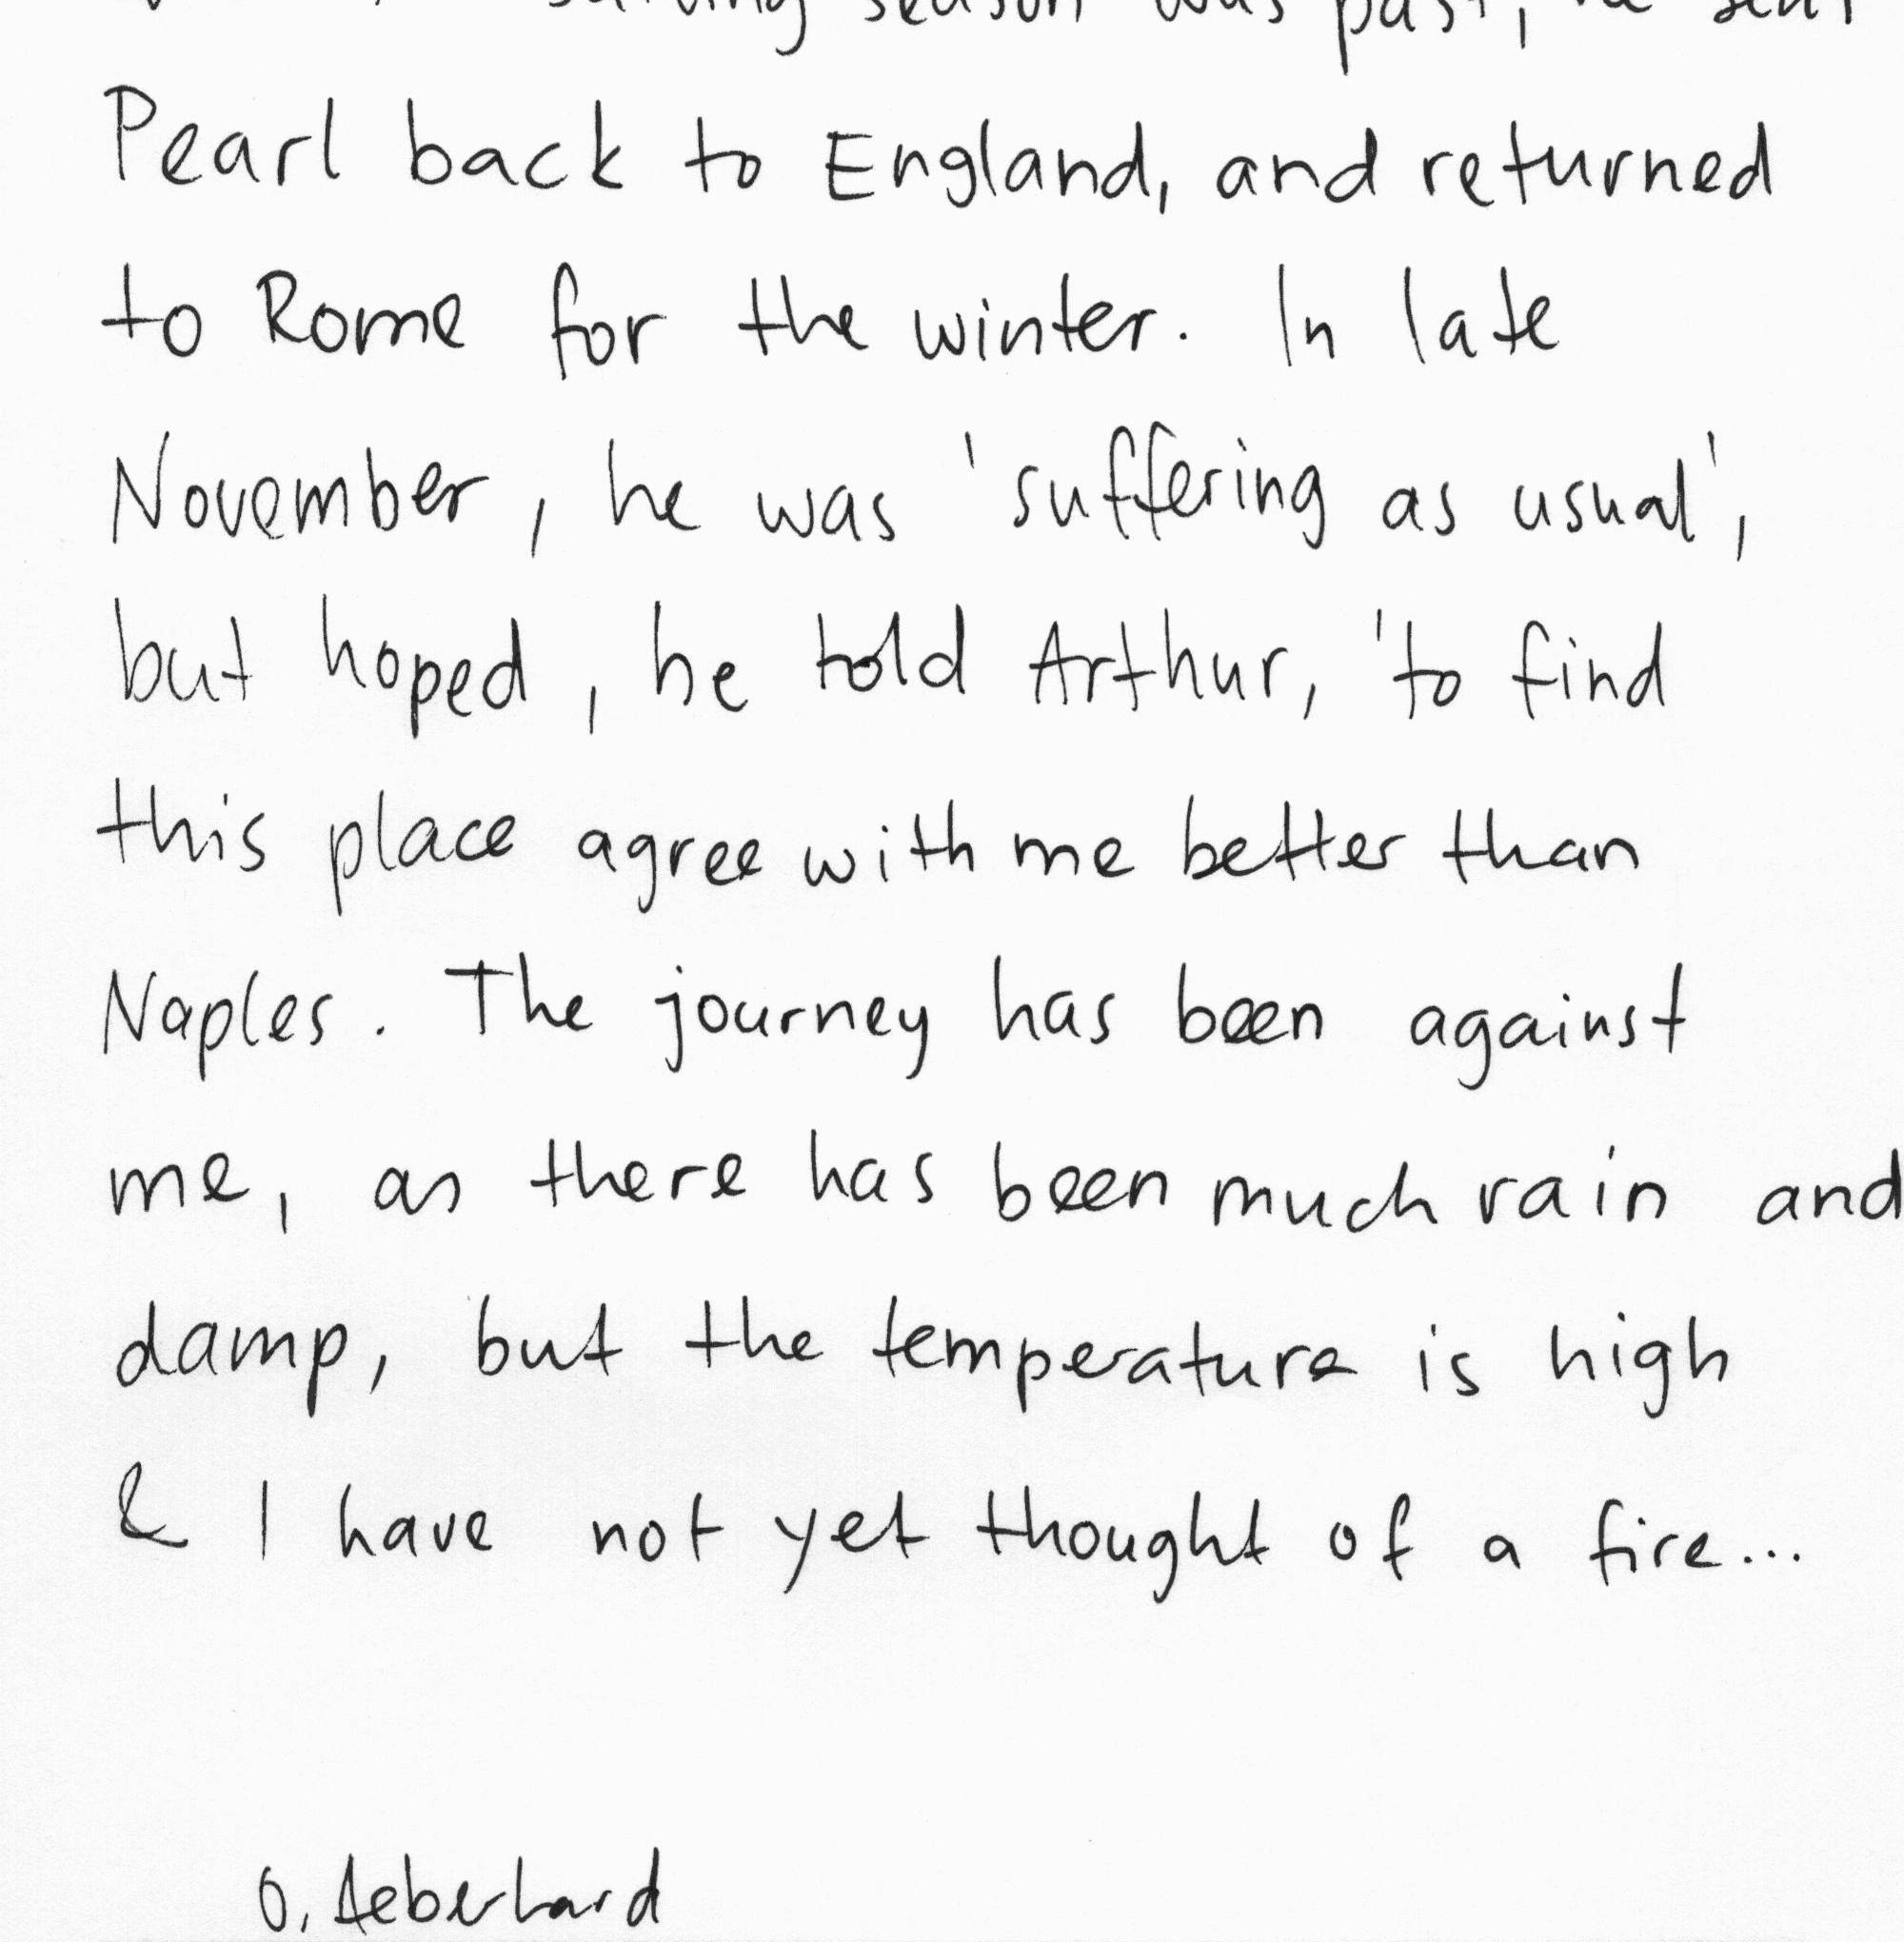 season was past, he sent
Pearl back to England, and returned
to Rome for the winter. In late
November, he was 'suffering as usual',
but hoped, he told Arthur, 'to find
this place agree with me better than
Naples. The journey has been against
me, as there has been much rain and
damp, but the temperature is high
& I have not yet thought of a fire...
O. Aeberhard